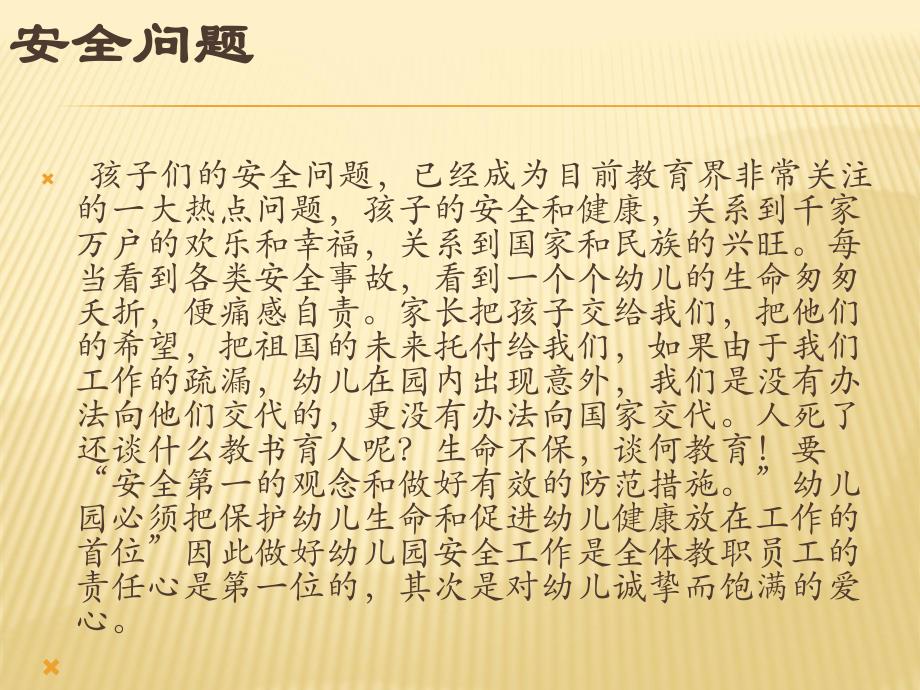 安全问题
孩子们的安全问题，已经成为目前教育界非常关注
的一大热点问题，孩子的安全和健康，关系到千家
万户的欢乐和幸福，关系到国家和民族的兴旺。每
当看到各类安全事故，看到一个个幼儿的生命匆匆
夭折，便痛感自责。家长把孩子交给我们，把他们
的希望，把祖国的未来托付给我们，如果由于我们
工作的疏漏，幼儿在园内出现意外，我们是没有办
法向他们交代的，更没有办法向国家交代。人死了
还谈什么教书育人呢？生命不保，谈何教育！要
“安全第一的观念和做好有效的防范措施。”幼儿
园必须把保护幼儿生命和促进幼儿健康放在工作的
首位”因此做好幼儿园安全工作是全体教职员工的
责任心是第一位的，其次是对幼儿诚挚而饱满的爱
心。